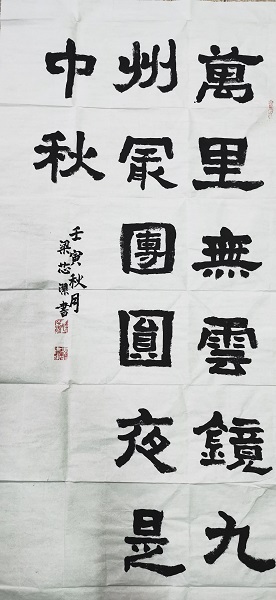 萬里無雲鏡九
州最團圓夜是
中秋
壬寅秋月
梁芯潔書